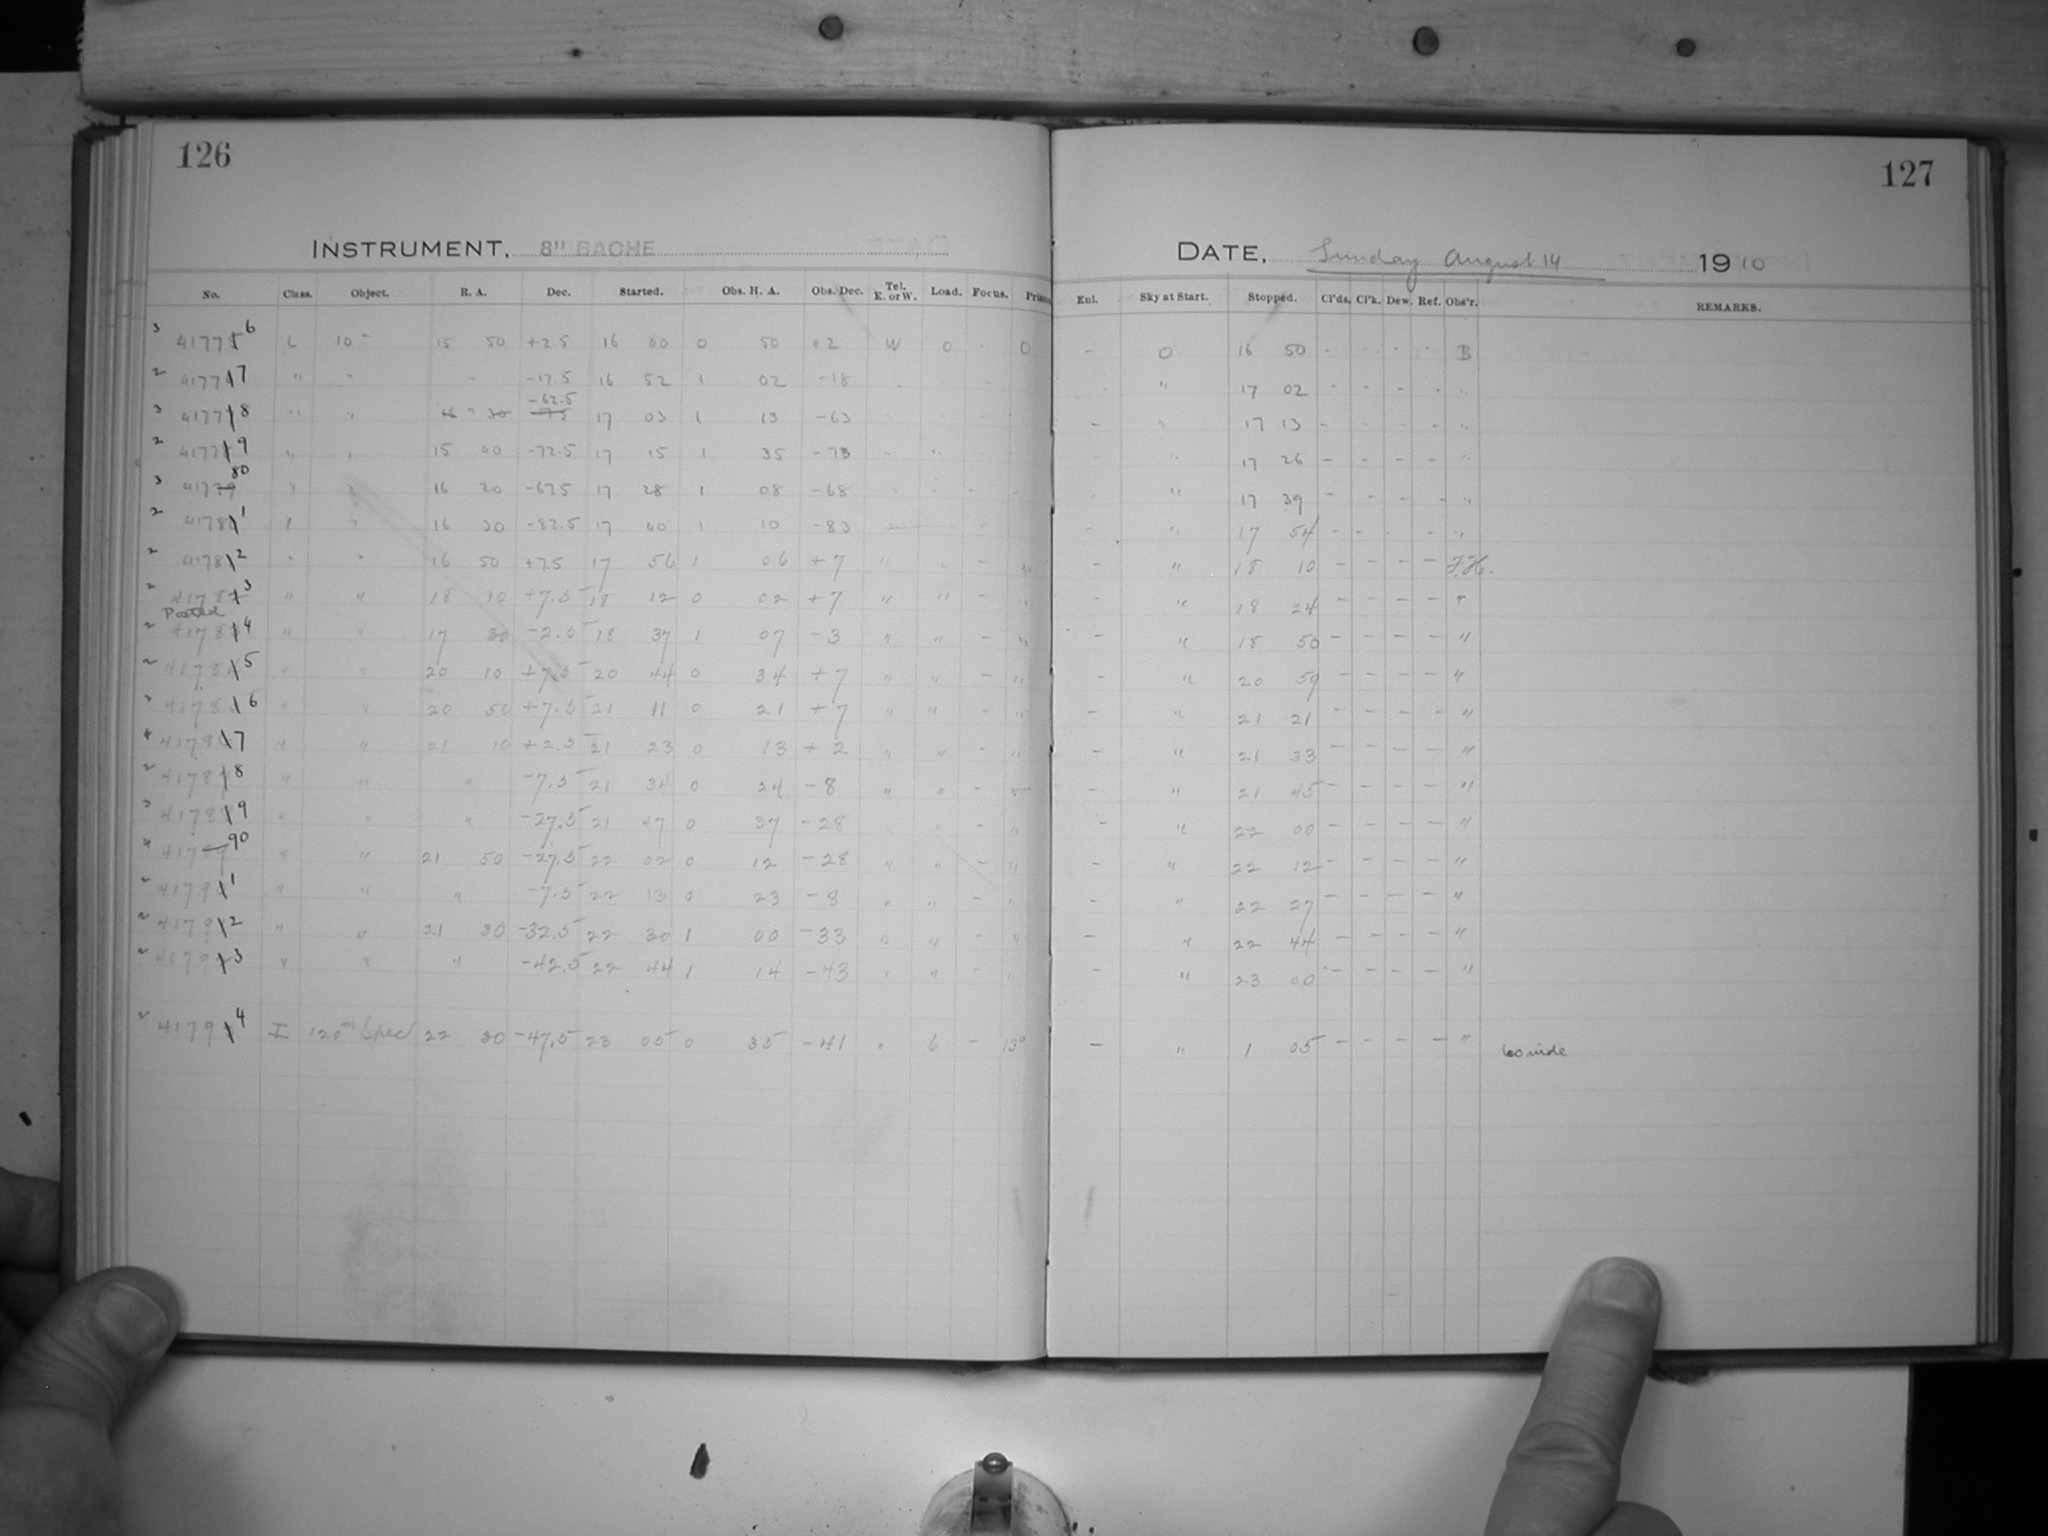 126
127
INSTRUMENT, 8" BACHE
DATE, Sunday August 14 1910
No. Class. Object. R. A. Dec. Started. Obs. H. A. Obs. Dec. Tel. E. or W. Load. Focus. Prism Eul. Sky at Start. Stopped. Cl'ds. Cl'k. Dew. Ref. Obs'r. REMARKS.
3 41775 6 L 10 - 15 50 +2.5 16 40 0 50 +2 W 0 - 0 - 0 16 50 - - - - B
2 4177 7 " " " -17.5 16 52 1 02 -18 " 17 02 - - - - "
3 4177 8 " " 16 " 30 -62.5 17 03 1 13 -63 - " 17 13 - - - - "
2 4177 9 " " 15 40 -72.5 17 15 1 35 -73 " 17 26 - - - - "
3 41779 80 " " 16 20 -67.5 17 28 1 08 -68 " 17 39 - - - - "
2 4178 1 " " 16 30 -82.5 17 40 1 10 -83 " 17 54 - - - - "
2 4178 2 " " 16 50 +7.5 17 56 1 06 +7 " " - " - " 18 10 - - - - F.H.
2 4178 3 " " 18 10 +7.5 18 12 0 02 +7 " " - " - " 18 24 - - - - "
Posted
2 4178 4 " " 17 30 -2.5 18 37 1 07 -3 " " - " - " 18 50 - - - - "
2 4178 5 " " 20 10 +7.5 20 44 0 34 +7 " " - " - " 20 59 - - - - "
2 4178 6 " " 20 50 +7.5 21 11 0 21 +7 " " - " - " 21 21 - - - - "
4 4178 7 " " 21 10 +2.5 21 23 0 13 +2 " " - " - " 21 33 - - - - "
2 4178 8 " " " -7.5 21 34 0 24 -8 " " - " - " 21 45 - - - - "
3 4178 9 " " " -27.5 21 47 0 37 -28 " - " - " 22 00 - - - - "
4 41789 90 " " 21 50 -27.5 22 02 0 12 -28 " " - " - " 22 12 - - - - "
2 4179 1 " " " -7.5 22 13 0 23 -8 " " - " - " 22 27 - - - - "
2 4179 2 " " 21 30 -32.5 22 30 1 00 -33 " " - " - " 22 44 - - - - "
2 4179 3 " " " -42.5 22 44 1 14 -43 " " - " - " 23 00 - - - - "
2 4179 4 I 120m Spec 22 30 -47.5 23 05 0 35 -41 " 6 - 13° - " 1 05 - - - - "